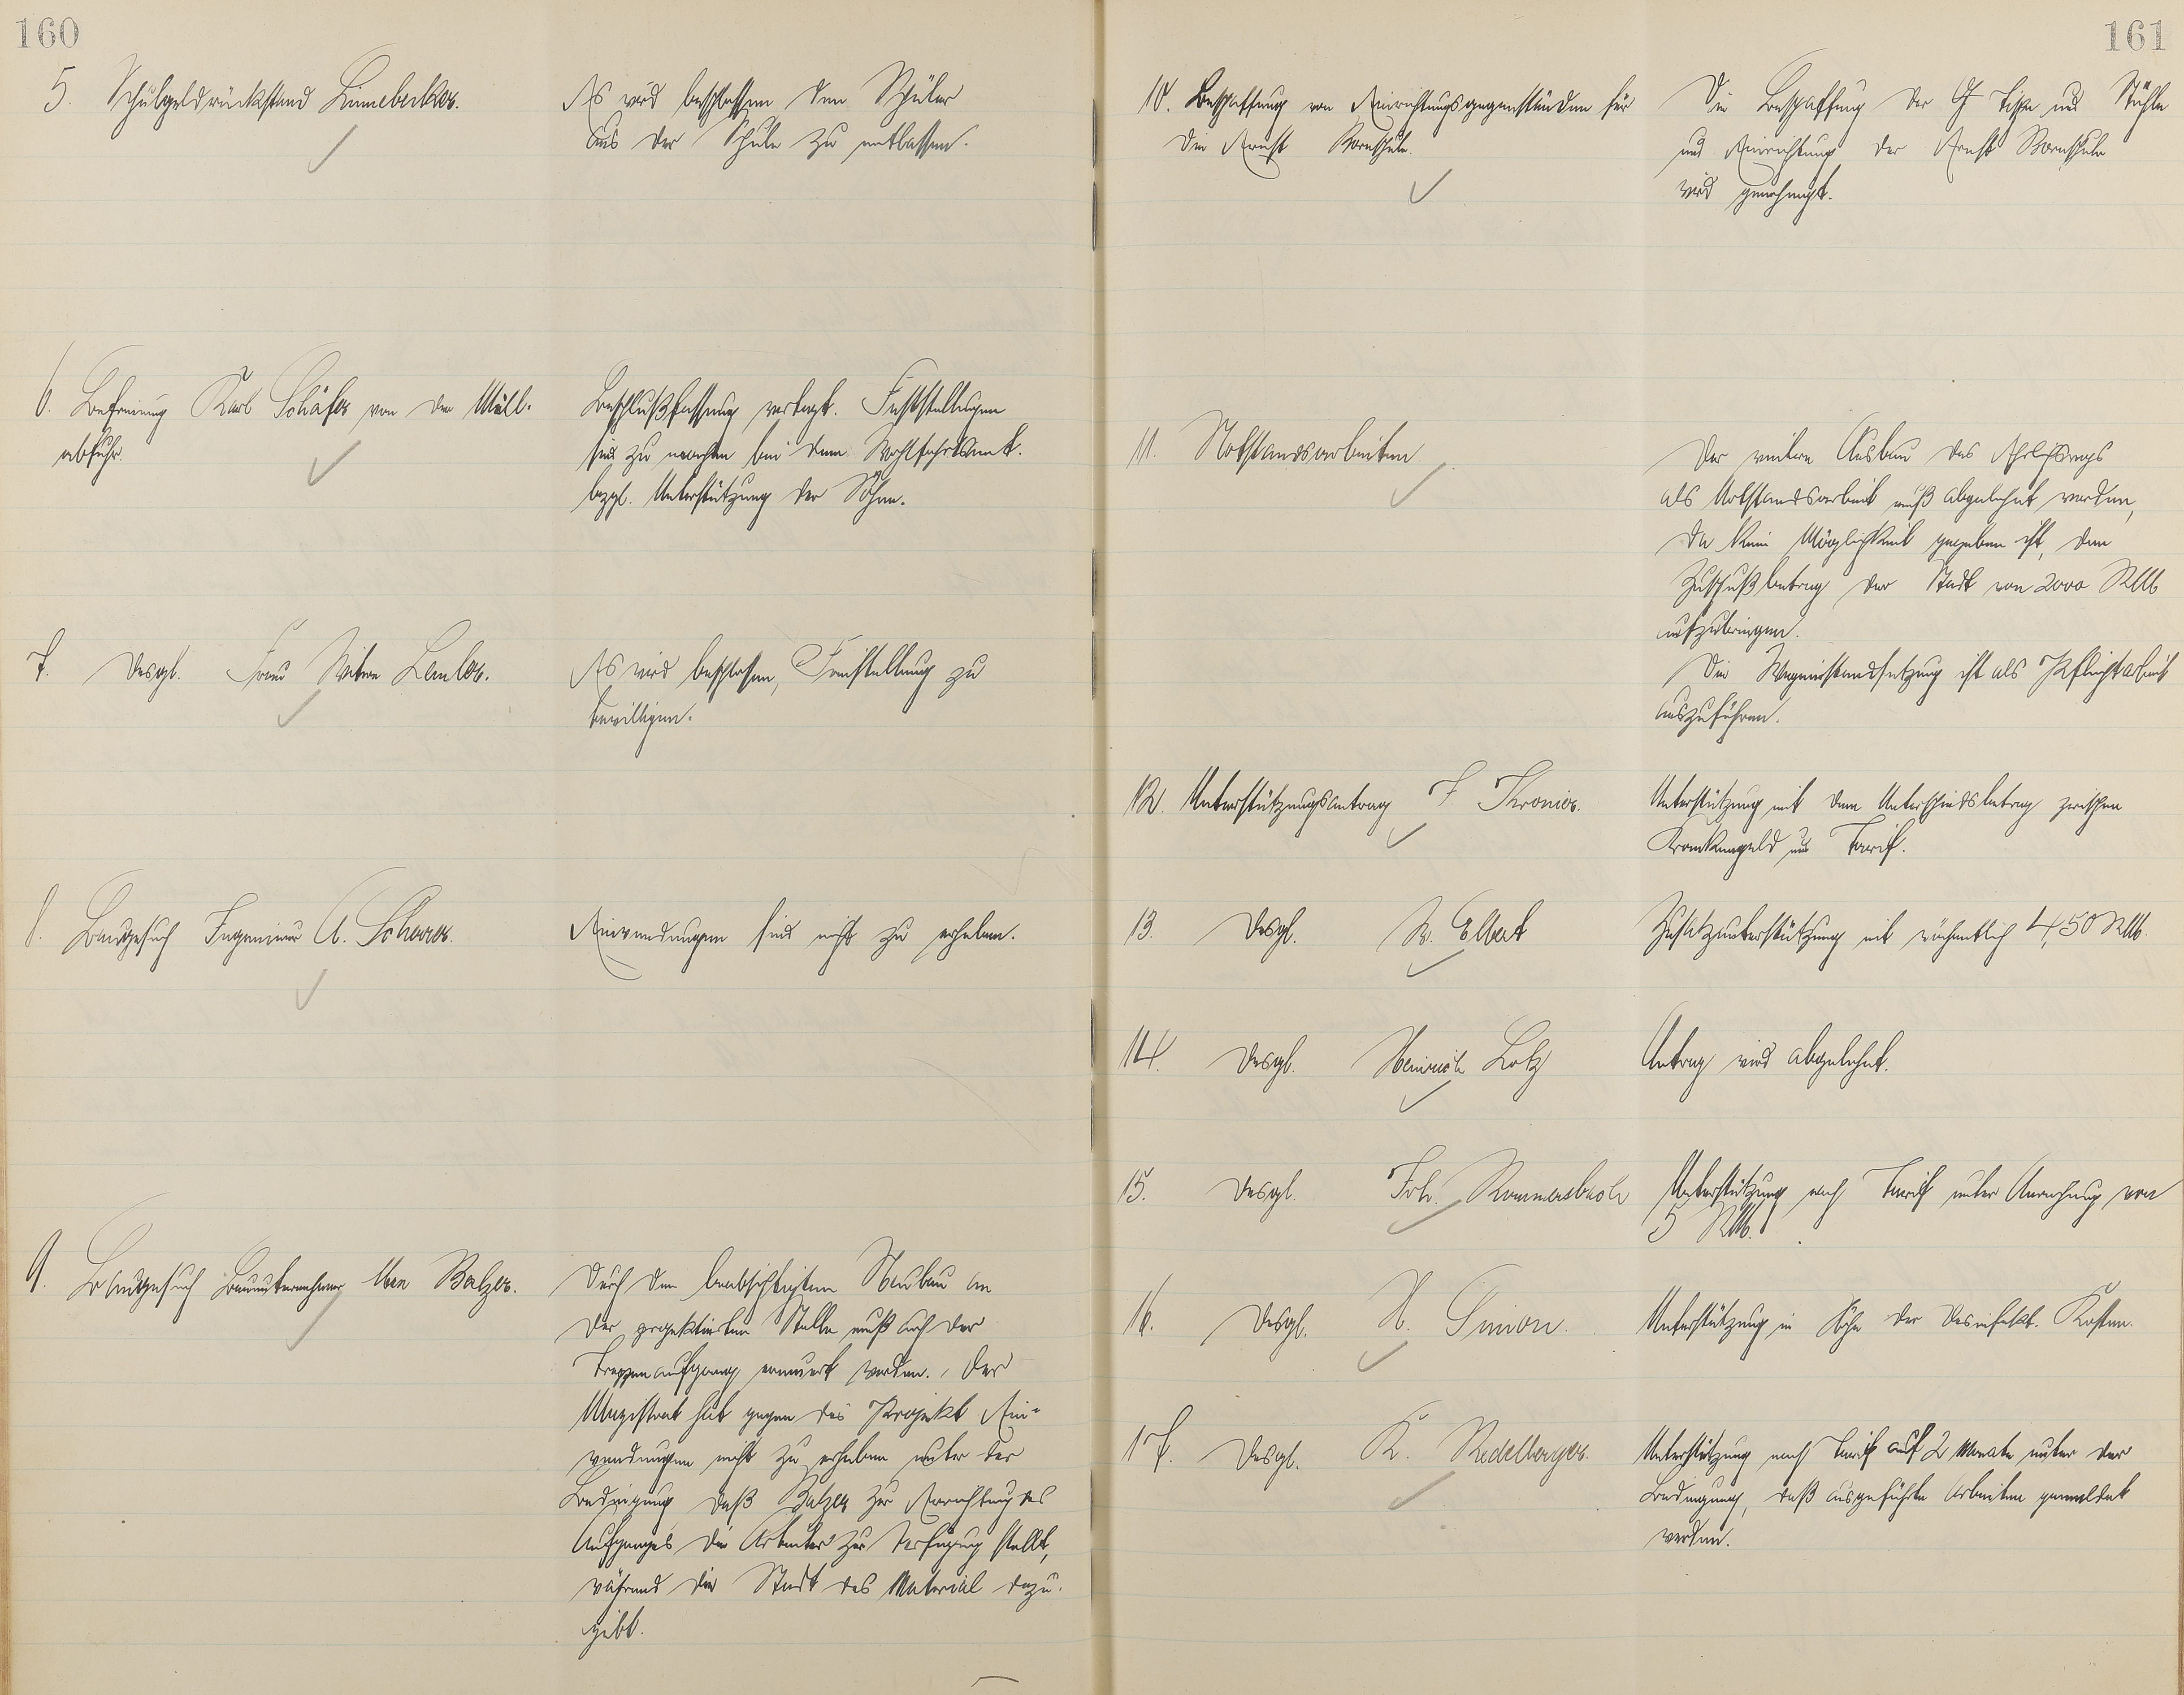 160
5. Schulgeldrückstand Linnebecker.
Es wird beschlossen den Schüler
aus der Schule zu entlassen.
6. Befreiung Karl Schäfer von der Müll-
abfuhr.
Beschlußfassung vertagt. Feststellungen
sind zu machen bei dem Wohlfahrtsamt.
bezgl. Unterstützung der Söhne.
7. Desgl. Frau Witwe
Es wird beschlossen, Freistellung zu
bewilligen.
8. Baugesuch Ingenieur A.
Einwendungen sind nicht zu erheben.
9. Baugesuch Bauunternehmer Balzer.
Durch den beabsichtigten Neubau an
der projektierten Stelle muß auch der
Treppenaufgang erneuert werden. Der
Magistrat hat gegen das Projekt Ein-
wendungen nicht zu erheben unter der
Bedingung daß Balzer zur Errichtung des
Aufganges die Arbeiter zur Verfügung stellt,
während die Stadt das Material dazu
gibt.
161
10. Beschaffung von Einrichtungsgegenständen für
die Ernst Bornschule.
Die Beschaffung der Tische und Stühle
und Einrichtung der Ernst Bornschule
wird genehmigt.
11. Notstandsarbeiten
Der weitere Ausbau des
als Notstandsarbeit muß abgelehnt werden,
da keine Möglichkeit gegeben ist, den
Zuschußbetrag der Stadt von 2000 RM
aufzubringen.
Die Wegeinstandsetzung ist als Pflichtarbeit
auszuführen.
12. Unterstützungsantrag F. Thronier.
Unterstützung mit dem Unterschiedsbetrag zwischen
Krankengeld und Tarif.
13. Desgl. W. Elbert
Zusatzunterstützung mit wöchentlich 4,50 RM.
14. Desgl. Heinrich Lotz
Antrag wird abgelehnt.
15. Desgl. Joh. Rommersbach
Unterstützung nach Tarif unter Anrechnung von
5 RM.
16. Desgl. H. Simon.
Unterstützung in Höhe der Desinfekt. Kosten.
17. Desgl. K. Redelberger.
Unterstützung nach Tarif auf 2 Monate unter der
Bedingung, daß ausgeführte Arbeiten gemeldet
werden.